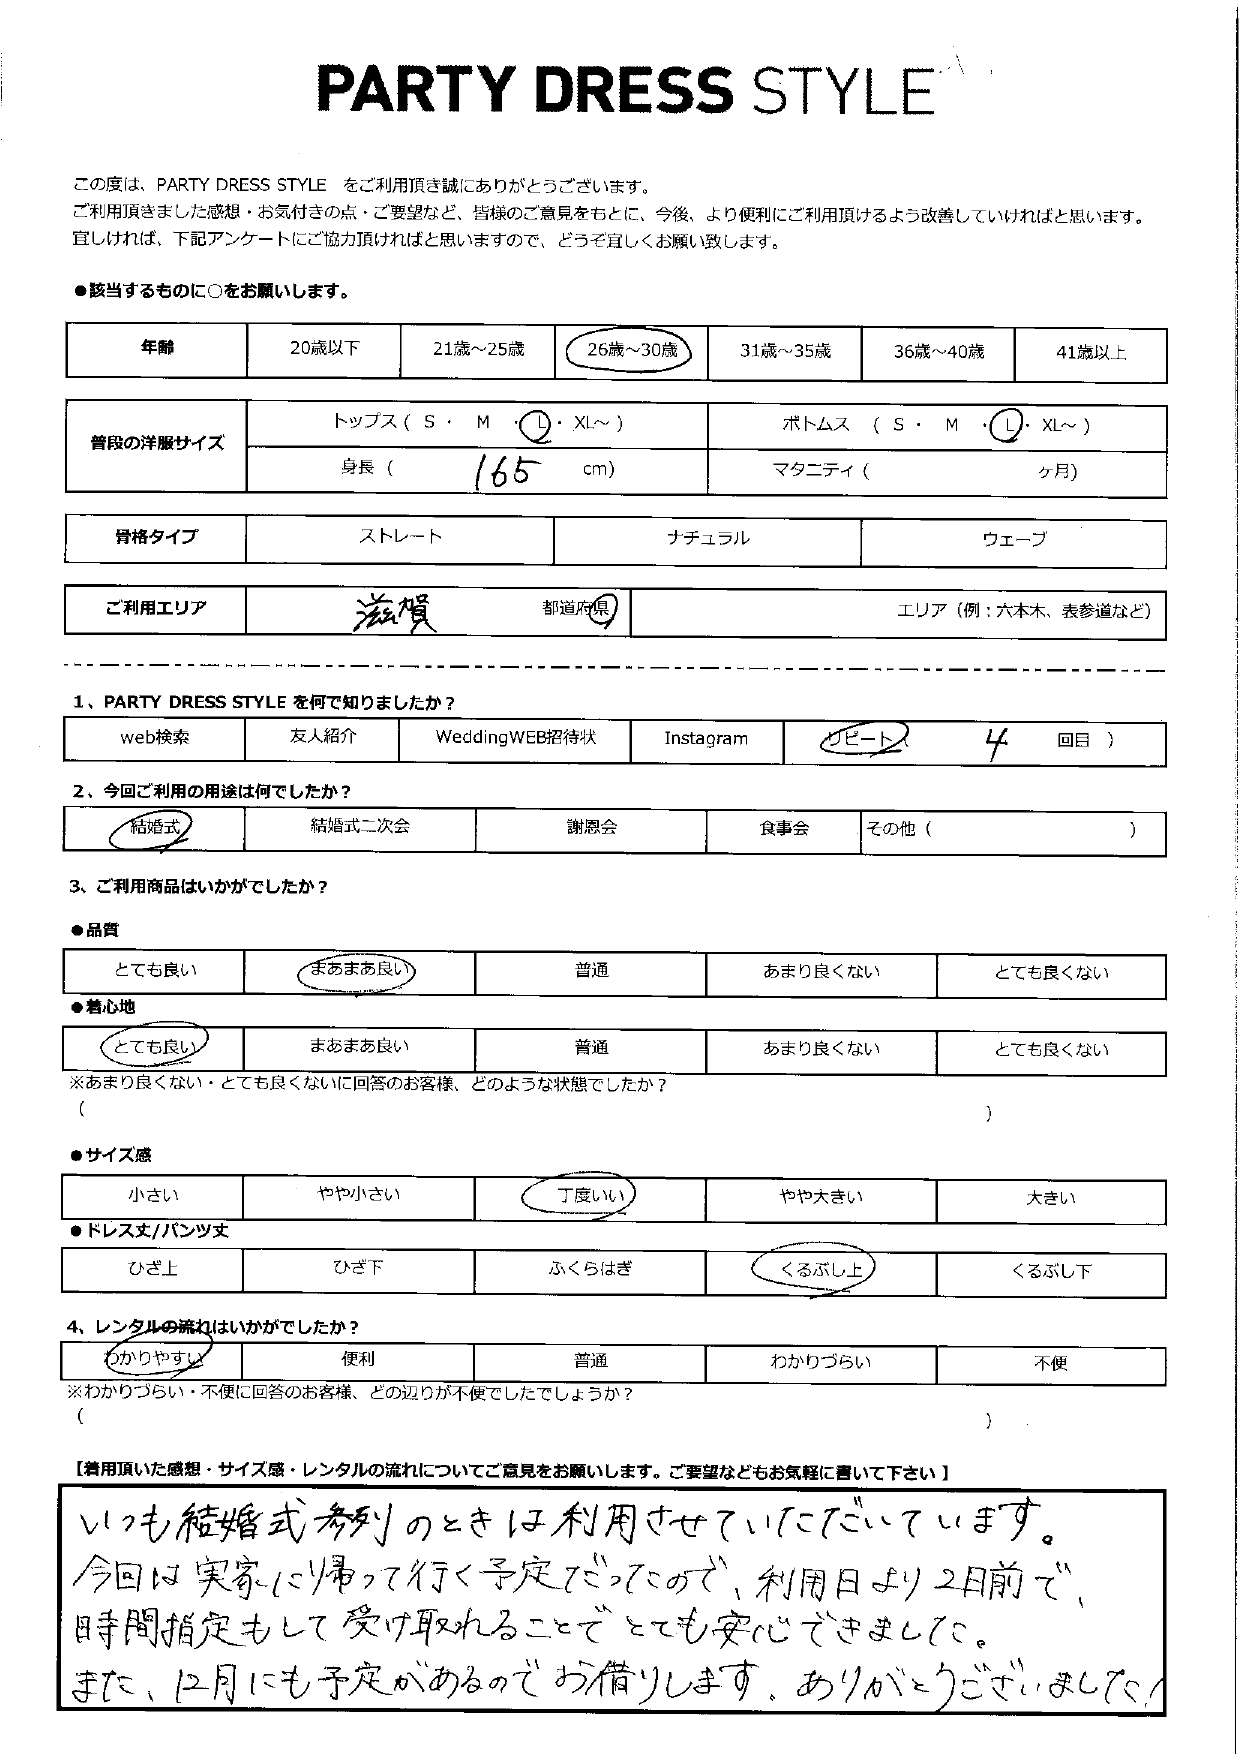 PARTY DRESS STYLE
この度は、PARTY DRESS STYLE をご利用頂き誠にありがとうございます。
ご利用頂きました感想・お気付きの点・ご要望など、皆様のご意見をもとに、今後、より便利にご利用頂けるよう改善していければと思います。
宜しければ、下記アンケートにご協力頂ければと思いますので、どうぞ宜しくお願い致します。
●該当するものに○をお願いします。
年齢 20歳以下 21歳～25歳 26歳～30歳 31歳～35歳 36歳～40歳 41歳以上
普段の洋服サイズ トップス ( S ・ M ・ L ・ XL～ ) ボトムス ( S ・ M ・ L ・ XL～ )
身長 ( 165 cm) マタニティ ( ヶ月)
骨格タイプ ストレート ナチュラル ウェーブ
ご利用エリア 滋賀 都道府県 エリア（例：六本木、表参道など）
1、PARTY DRESS STYLE を何で知りましたか？
web検索 友人紹介 WeddingWEB招待状 Instagram リピート( 4 回目 )
2、今回ご利用の用途は何でしたか？
結婚式 結婚式二次会 謝恩会 食事会 その他 ( )
3、ご利用商品はいかがでしたか？
●品質
とても良い まあまあ良い 普通 あまり良くない とても良くない
●着心地
とても良い まあまあ良い 普通 あまり良くない とても良くない
※あまり良くない・とても良くないに回答のお客様、どのような状態でしたか？
( )
●サイズ感
小さい やや小さい 丁度いい やや大きい 大きい
●ドレス丈/パンツ丈
ひざ上 ひざ下 ふくらはぎ くるぶし上 くるぶし下
4、レンタルの流れはいかがでしたか？
わかりやすい 便利 普通 わかりづらい 不便
※わかりづらい・不便に回答のお客様、どの辺りが不便でしたでしょうか？
( )
【着用頂いた感想・サイズ感・レンタルの流れについてご意見をお願いします。ご要望などもお気軽に書いて下さい】
いつも結婚式参列のときは利用させていただいています。
今回は実家に帰って行く予定だったので、利用日より2日前で、
時間指定もして受け取れることでとても安心できました。
また、12月にも予定があるのでお借りします。ありがとうございました!